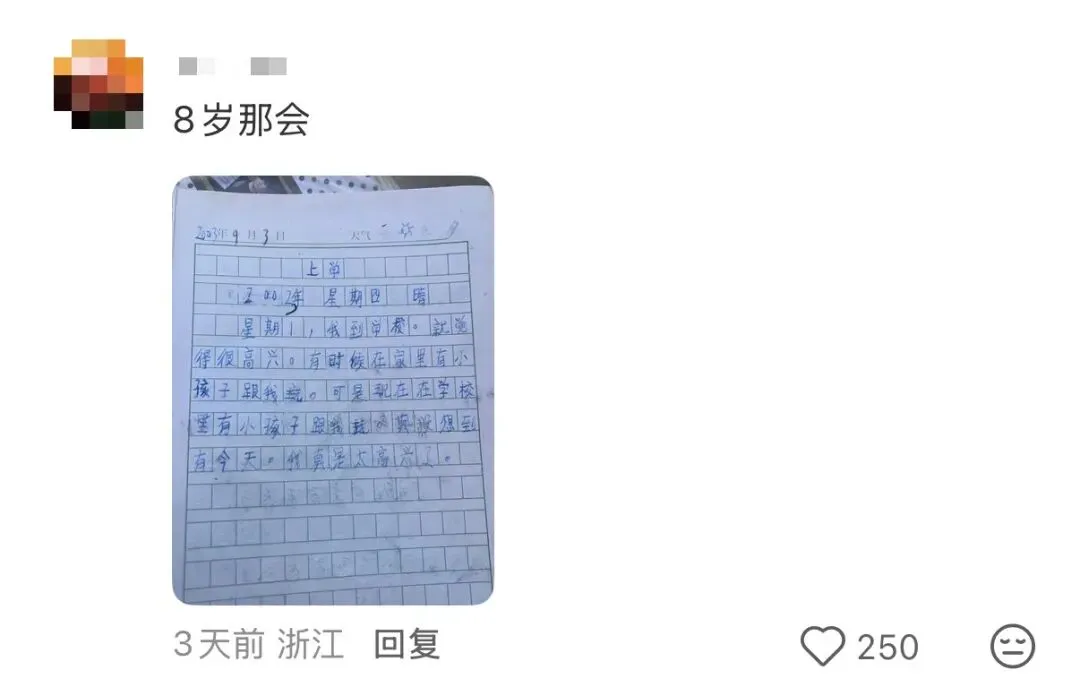 8岁那会
2003年9月3日 天气
上学
2003年 星期四 晴
星期1,我到学校。就觉
得很高兴。有时候在家里有小
孩子跟我玩。可是现在在学校
里有小孩子跟我玩。真没想到
有今天。我真是太高兴了。
3天前 浙江 回复
250